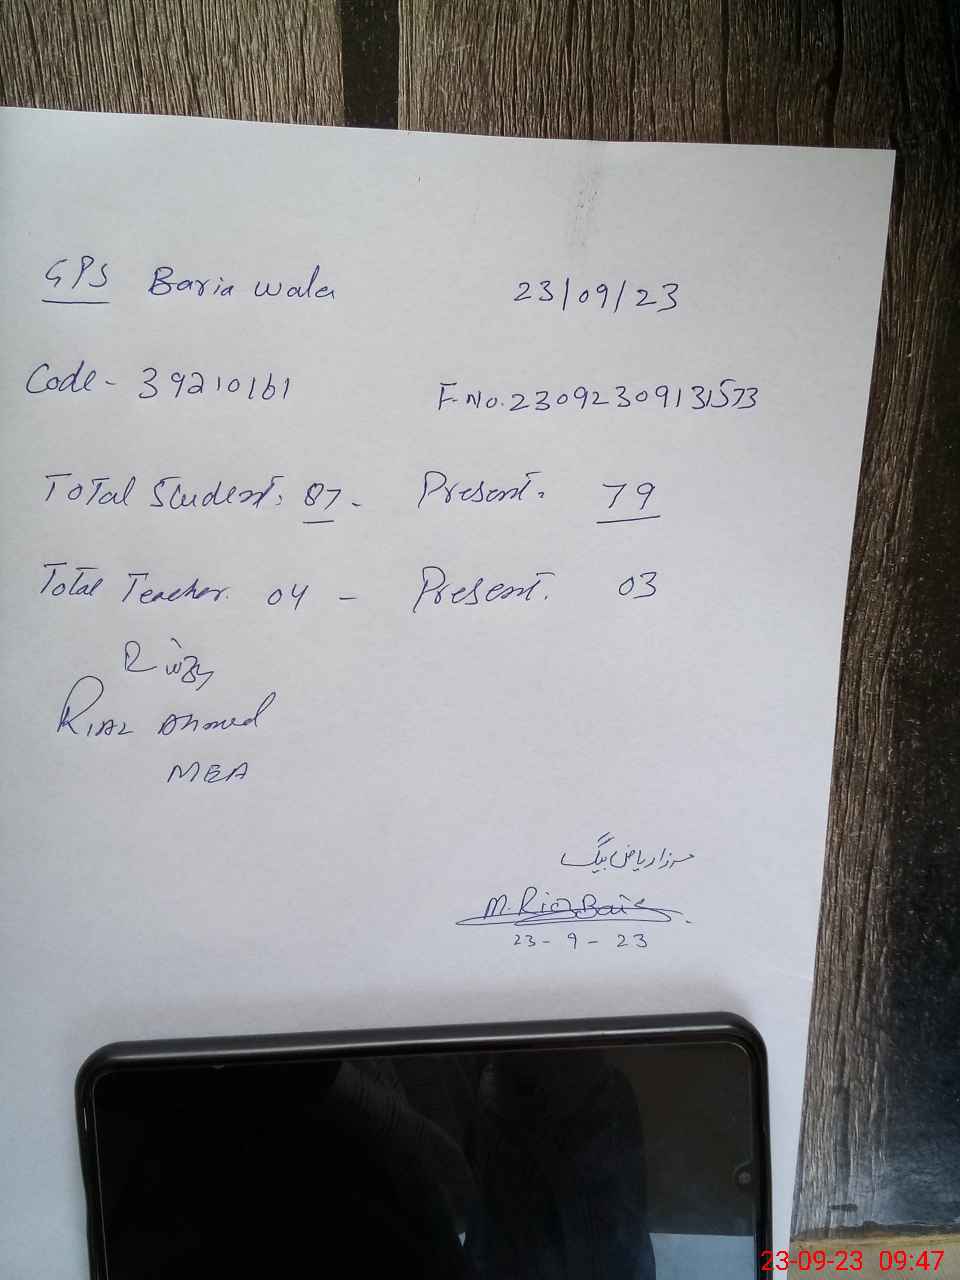 GPS Baria wala 23/09/23
Code - 39210161 F.No. 23092309131573
Total Student: 87 - Present. 79
Total Teacher. 04 - Present. 03
Riaz Ahmed
MEA
مرزا ریاض بیگ
M. Riaz Baig
23-9-23
23-09-23 09:47